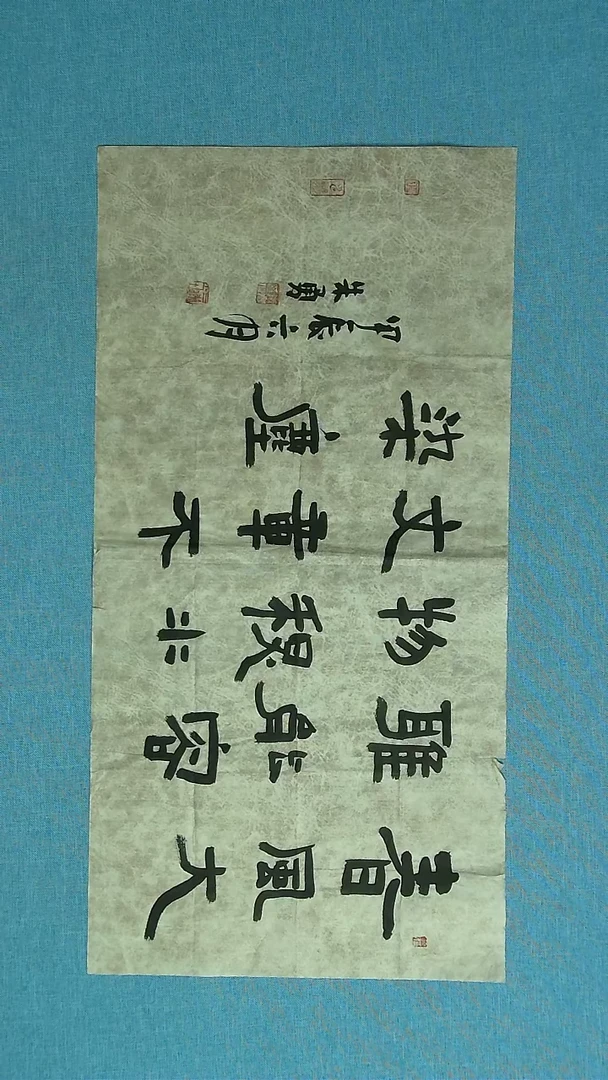 春風大
雅能容
物秋水
文章不
染塵
甲辰六月
朱勇